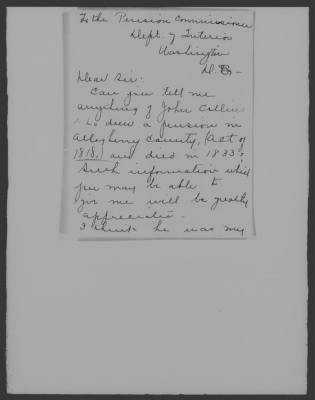 To the Pension Commissioner
Dept. of Interior
Washington
D.C. –
Dear Sir:
Can you tell me
anything of John
who drew a pension in
Allegheny County, (Act of
1818,) and died in 1833?
Such information which
you may be able to
give me will be greatly
appreciated.
I think he was my